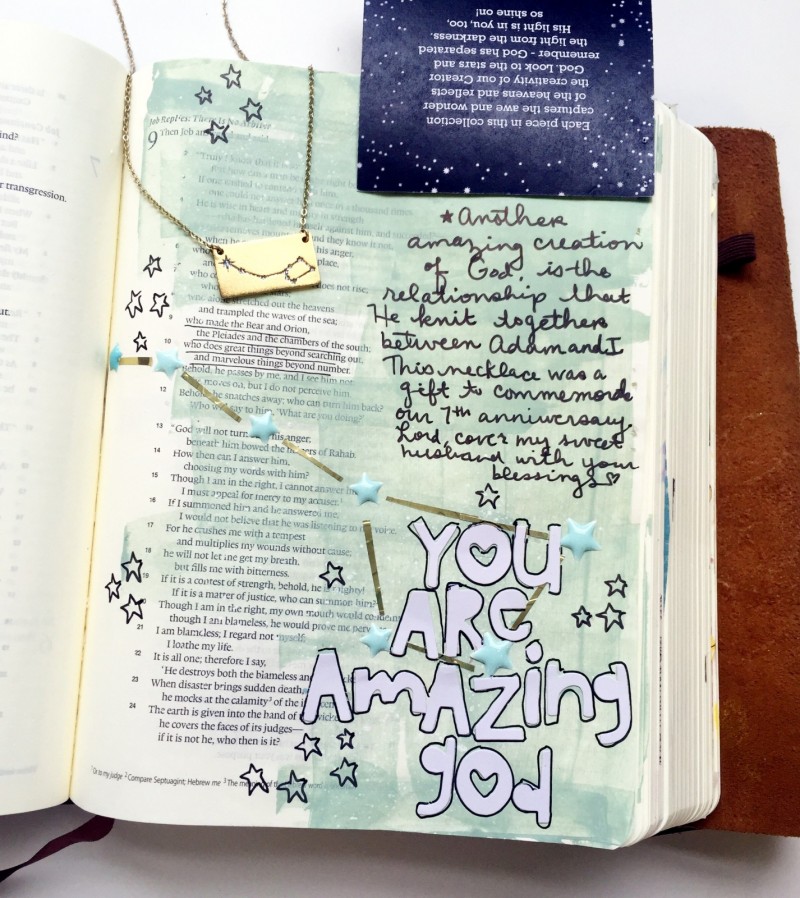 Each piece in this collection
captures the awe and wonder
of the heavens and reflects
the creativity of our Creator
God. Look to the stars and
remember - God has separated
the light from the darkness.
His light is in you, too,
so shine on!
ind?
r transgression.
ut.
7
Job Replies: There Is No Arbiter
9 Then Job and said
"Truly I know that it
He is wise in heart and mighty in strength
his anger,
place,
does not rise;
who alone stretched out the heavens
and trampled the waves of the sea;
9 who made the Bear and Orion,
the Pleiades and the chambers of the south;
10 who does great things beyond searching out,
and marvelous things beyond number.
Behold, he passes by me, and I see him not;
he moves on, but I do not perceive him.
12 Behold, he snatches away; who can turn him back?
Who will say to him, 'What are you doing?'
13 "God will not turn his anger;
beneath him bowed the of Rahab.
14 How then can I answer him,
choosing my words with him?
15 Though I am in the right, I cannot answer him;
I must appeal for mercy to my accuser.
16 If I summoned him and he answered me,
I would not believe that he was listening to my voice.
17 For he crushes me with a tempest
and multiplies my wounds without cause;
18 he will not let me get my breath,
but fills me with bitterness.
19 If it is a contest of strength, behold, he is mighty!
If it is a matter of justice, who can summon him?
20 Though I am in the right, my own mouth would condemn
though I am blameless, he would prove me perv
21 I am blameless; I regard not myself;
I loathe my life.
22 It is all one; therefore I say,
'He destroys both the blameless and
23 When disaster brings sudden death,
he mocks at the calamity² of the
24 The earth is given into the hand of
he covers the faces of its judges—
if it is not he, who then is it?
¹ Or to my judge ² Compare Septuagint; Hebrew me ³ The meaning of
★ Another
amazing creation
of God is the
relationship that
He knit together
between Adam and I
This necklace was a
gift to commemorate
our 7th anniversary.
Lord, cover my sweet
husband with your
blessings ♡
YOU
ARE
AmAZing
god